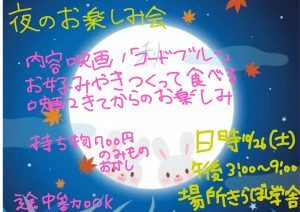 夜のお楽しみ会
内容映画「コードブルー」
お好みやきつくって食べる
映画2きてからのお楽しみ
持ち物700円
のみもの
おかし
日時10/26(土)
午後3:00~9:00
場所きらぼ学舎
途中参加OK